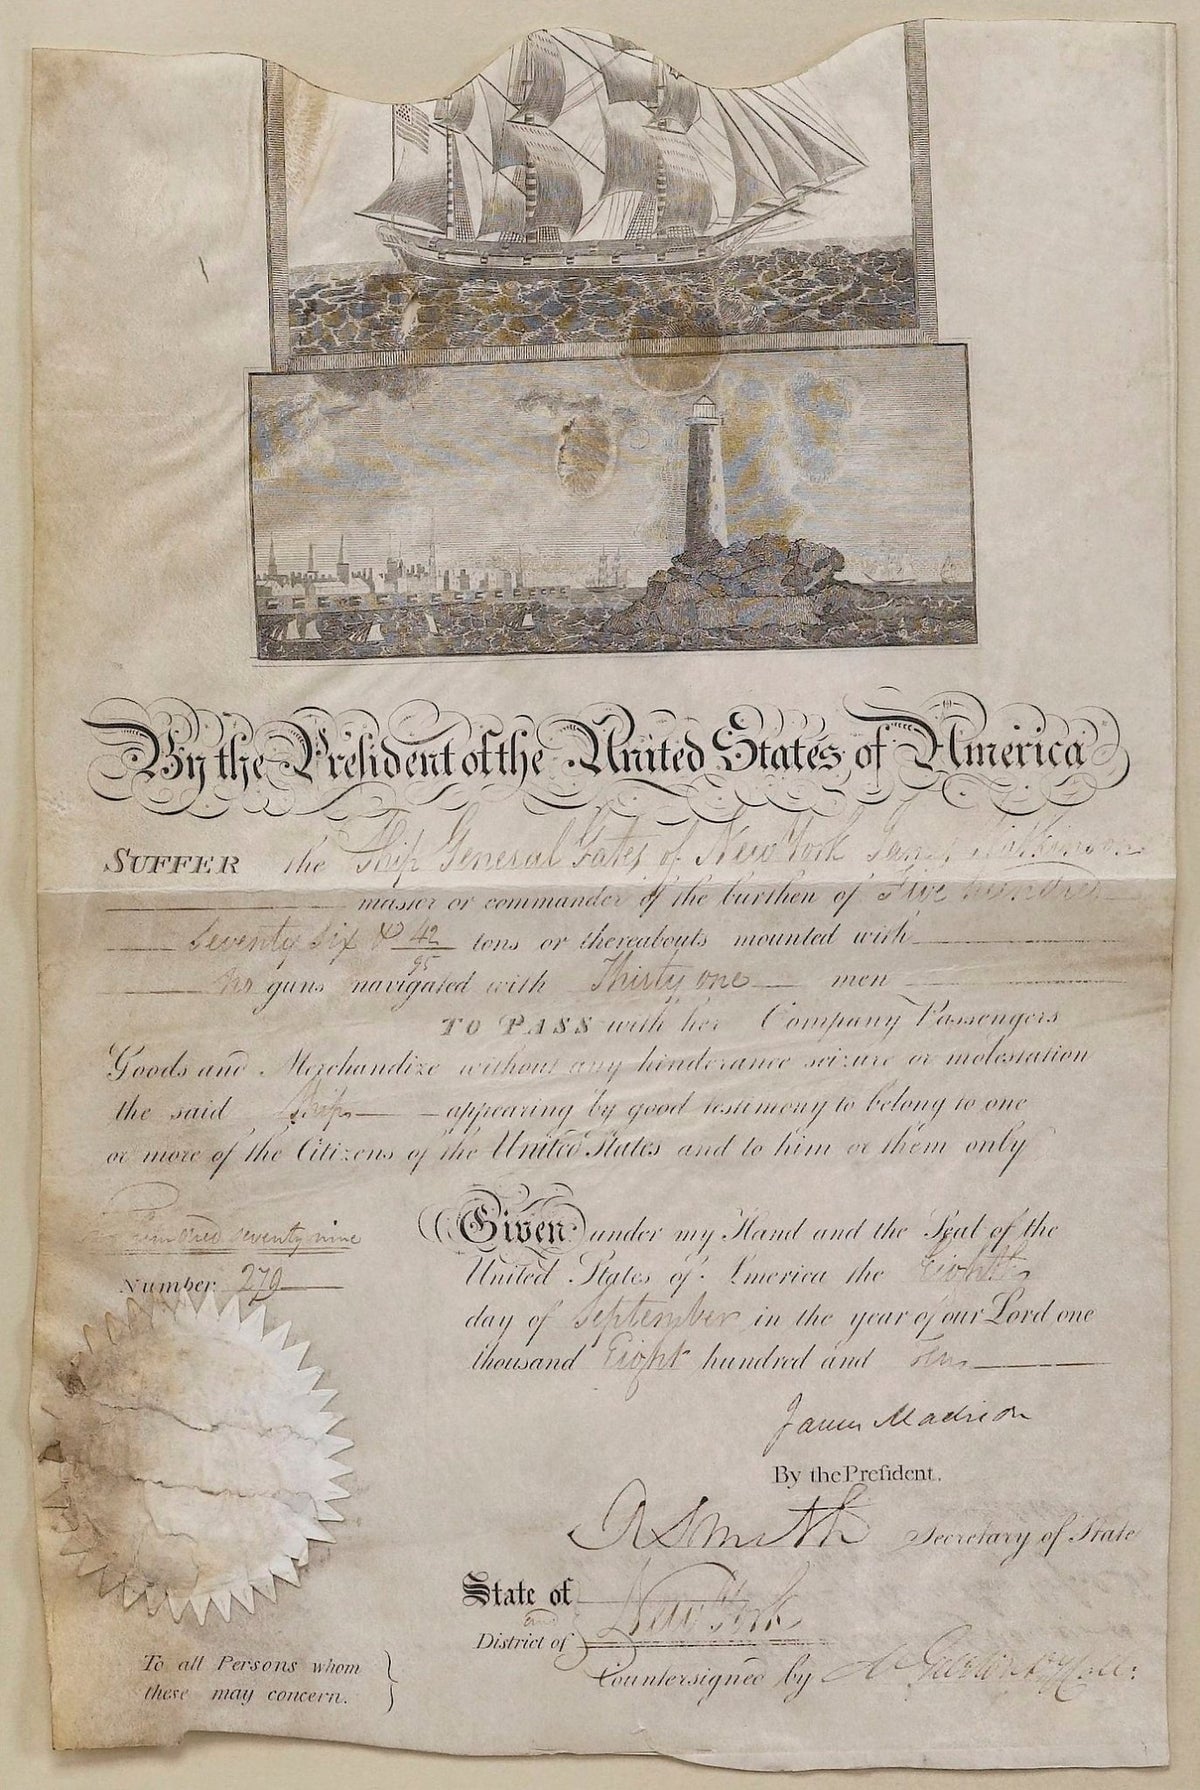 By the President of the United States of America
SUFFER the Ship General Gates of New York
master or commander of the burthen of Five hundred
Seventy Six & 42/95 tons or thereabouts mounted with
no guns navigated with Thirty one men
TO PASS with her Company Passengers
Goods and Merchandize without any hinderance seizure or molestation
the said Ship appearing by good testimony to belong to one
or more of the Citizens of the United States and to him or them only
hundred seventy nine
Number 279
Given under my Hand and the Seal of the
United States of America the Eighth
day of September in the year of our Lord one
thousand Eight hundred and Ten
James Madison
By the President.
R Smith Secretary of State
State of
and New York
District of
Countersigned by
To all Persons whom
these may concern.